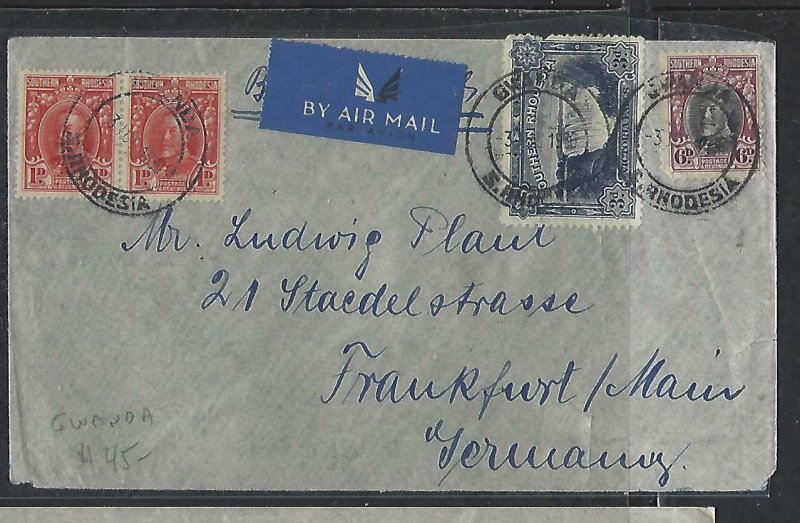 SOUTHERN RHODESIA SOUTHERN RHODESIA
1D 1D 1D
POSTAGE & REVENUE POSTAGE & REVENUE
S.RHODESIA
BY AIR MAIL
PAR AVION
GWANDA
S.RHO
SOUTHERN RHODESIA
3D 3D
SOUTHERN RHODESIA
6D 6D
POSTAGE & REVENUE
GWANDA
S.RHODESIA
Mr. Ludwig Plaut
21 Staedelstrasse
Frankfurt/Main
Germany.
GWANDA
45-